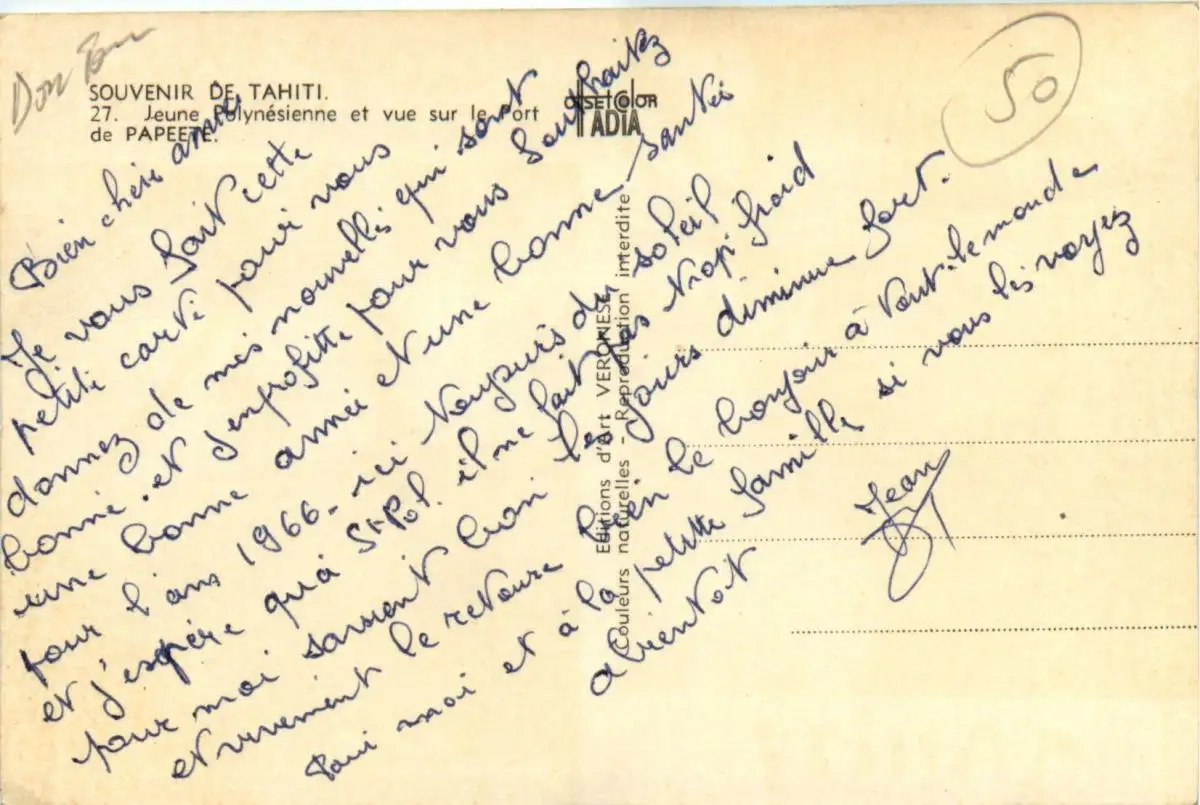 SOUVENIR DE TAHITI.
27. Jeune Polynésienne et vue sur le Port
de PAPEETE.
OFFSETCOLOR
ADIA
50
Bien chère amie
Je vous fait cette
petite carte pour vous
donnez de mes nouvelles qui sont
bonne et j'enprofitte pour vous Souhaitez
une bonne année et une bonne santée
pour l'ans 1966 - ici toujours du soleil
et j'espère qu'à St Pol. il ne fait pas trop froid
pour moi savient bon les jours diminue fort.
et vivement le retoure bien le bonjour à tout le monde
Pour moi et à la petitte famille si vous les voyez
a bientot
Jean
Editions d'Art VERONESE
Couleurs naturelles - Reproduction interdite